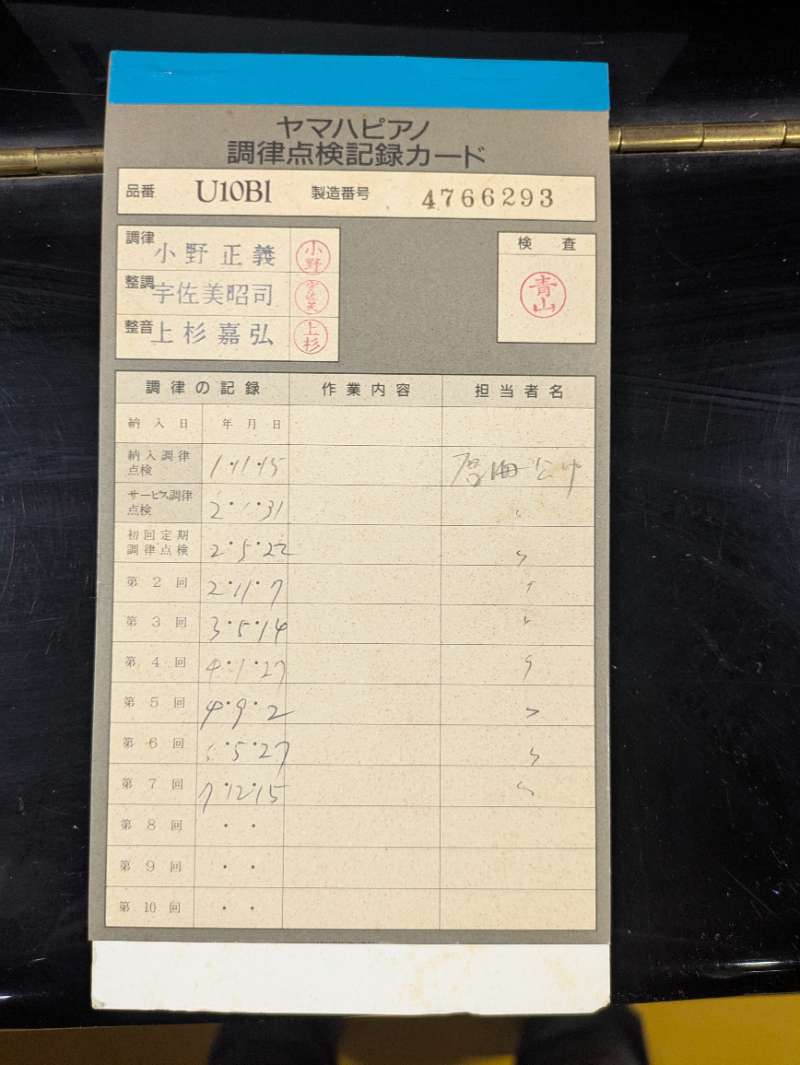 ヤマハピアノ
調律点検記録カード
品番 U10Bl 製造番号 4766293
調律 小野正義 小野
整調 宇佐美昭司 宇佐美
整音 上杉嘉弘 上杉
検査
青山
調律の記録 作業内容 担当者名
納入日 年月日
納入調律点検 1・11・15
サービス調律点検 2・1・31
初回定期調律点検 2・5・22
第2回 2・11・7
第3回 3・5・14
第4回 4・1・27
第5回 4・9・2
第6回 ・5・27
第7回 7・12・15
第8回 ・・
第9回 ・・
第10回 ・・